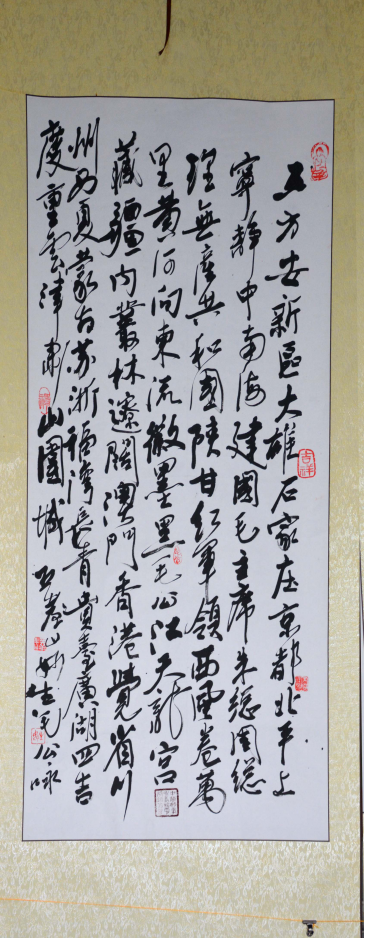 五方安新區大雄石家庄京都北平上
寧靜中南海建國毛主席朱總周總
理無產共和國陝甘紅軍領西風卷萬
里黃河向東流徽墨黑毛公江天龍宮
藏疆內叢林遼闊澳門香港覺省川
州西夏蒙古苏浙福灣長青貴臺廣湖四吉
慶重雲津 山園城
吉祥